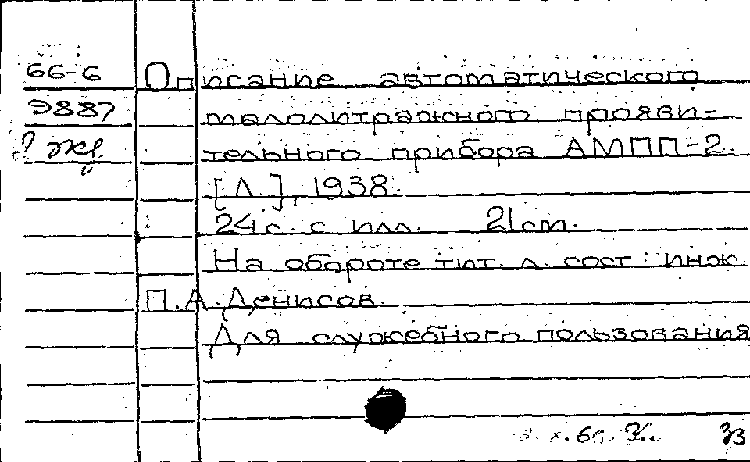 66-6 Описание автоматического
9887 малолитражного прояви-
тельного прибора АМПП-2.
[Л.], 1938.
24 с. с илл. 21 см.
На обороте тит. л. сост: инж.
П.А. Денисов.
Для служебного пользования